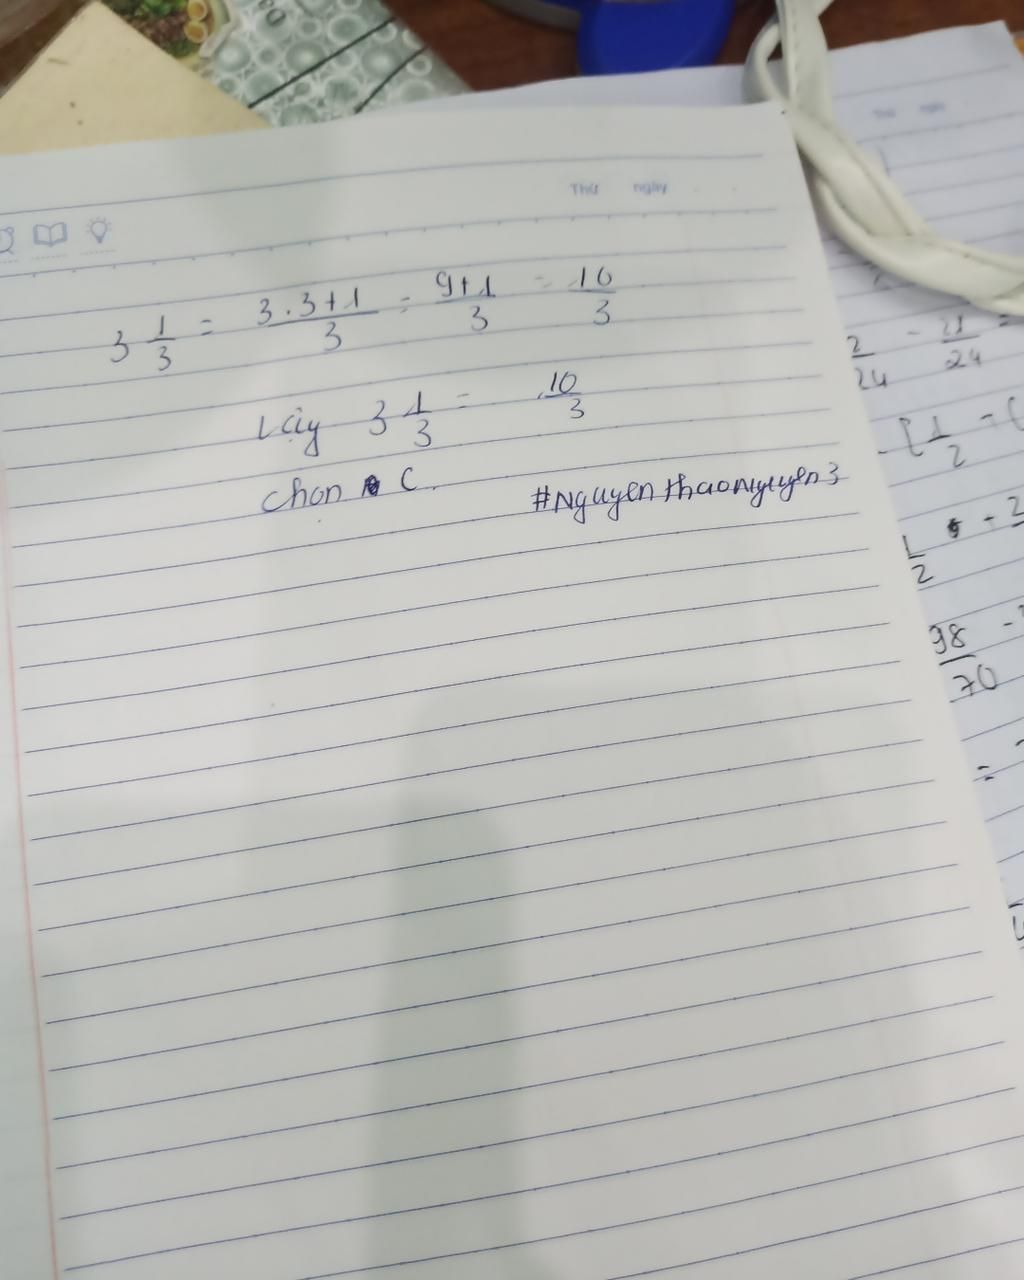 Thứ ngày
3 1/3 = 3.3+1/3 = 9+1/3 = 10/3
Vậy 3 1/3 = 10/3
chọn C.
#Nguyenthaonguyen3
2/24 - 21/24 =
- [1/2 - (
1/2
98/70 -
=